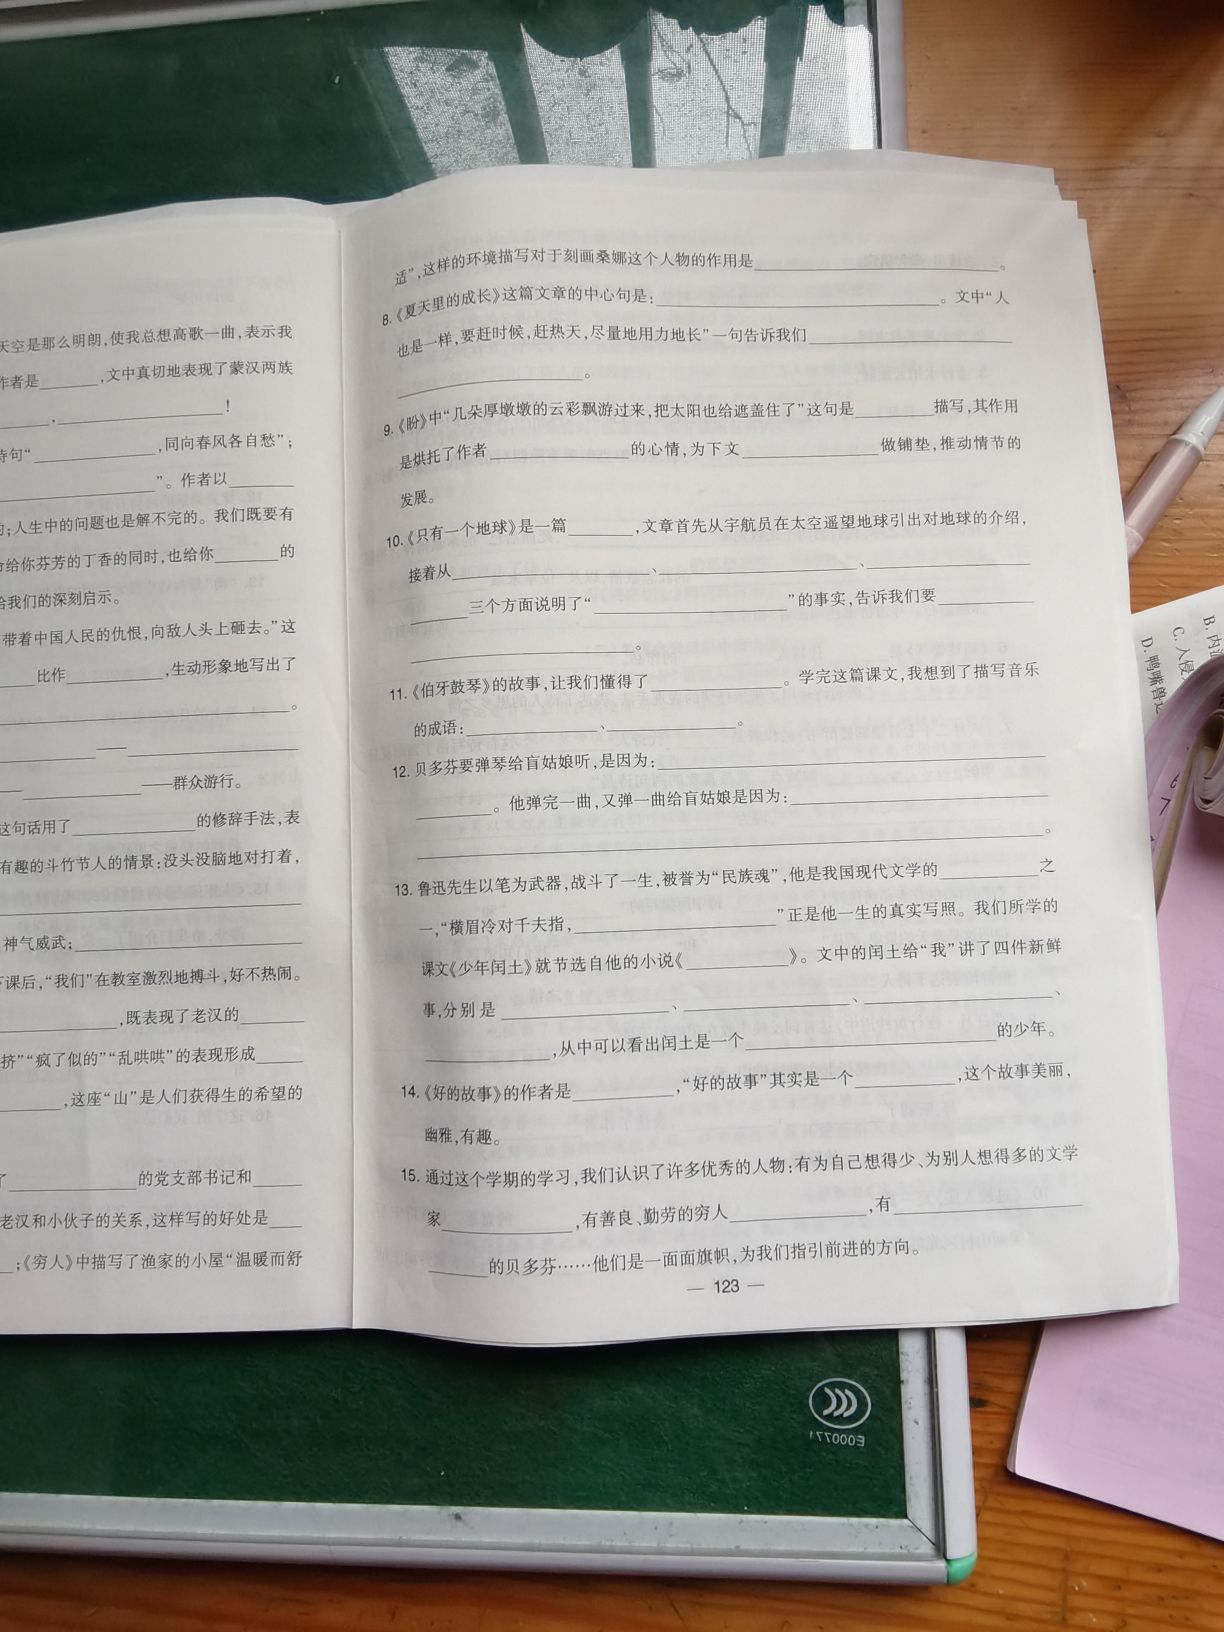 天空是那么明朗,使我总想高歌一曲,表示我
作者是______,文中真切地表现了蒙汉两族
______,____________!
诗句“____________,同向春风各自愁”;
____________”。作者以______
的;人生中的问题也是解不完的。我们既要有
给你芬芳的丁香的同时,也给你______的
给我们的深刻启示。
带着中国人民的仇恨,向敌人头上砸去。”这
____比作________,生动形象地写出了
____________。
____——____________
____________——群众游行。
这句话用了____________的修辞手法,表
有趣的斗竹节人的情景:没头没脑地对打着,
____________
神气威武;____________
下课后,“我们”在教室激烈地搏斗,好不热闹。
____________,既表现了老汉的______
挤”“疯了似的”“乱哄哄”的表现形成____
________,这座“山”是人们获得生的希望的
了____________的党支部书记和____
老汉和小伙子的关系,这样写的好处是____
__;《穷人》中描写了渔家的小屋“温暖而舒
适”,这样的环境描写对于刻画桑娜这个人物的作用是____________。
8.《夏天里的成长》这篇文章的中心句是:____________。文中“人
也是一样,要赶时候,赶热天,尽量地用力地长”一句告诉我们____________
____________。
9.《盼》中“几朵厚墩墩的云彩飘游过来,把太阳也给遮盖住了”这句是______描写,其作用
是烘托了作者____________的心情,为下文____________做铺垫,推动情节的
发展。
10.《只有一个地球》是一篇______,文章首先从宇航员在太空遥望地球引出对地球的介绍,
接着从____________、____________、____________
____三个方面说明了“____________”的事实,告诉我们要________
____________。
11.《伯牙鼓琴》的故事,让我们懂得了____________。学完这篇课文,我想到了描写音乐
的成语:____________、____________。
12. 贝多芬要弹琴给盲姑娘听,是因为:____________
______。他弹完一曲,又弹一曲给盲姑娘是因为:____________
____________。
13. 鲁迅先生以笔为武器,战斗了一生,被誉为“民族魂”,他是我国现代文学的________之
一,“横眉冷对千夫指,____________”正是他一生的真实写照。我们所学的
课文《少年闰土》就节选自他的小说《________》。文中的闰土给“我”讲了四件新鲜
事,分别是____________、____________、____________、
____________,从中可以看出闰土是一个____________的少年。
14.《好的故事》的作者是________,“好的故事”其实是一个________,这个故事美丽,
幽雅,有趣。
15. 通过这个学期的学习,我们认识了许多优秀的人物:有为自己想得少、为别人想得多的文学
家____________,有善良、勤劳的穷人____________,有____________
____的贝多芬……他们是一面面旗帜,为我们指引前进的方向。
— 123 —
B. 内
C. 入侵
D. 鸭嘴兽
6
7
E000771